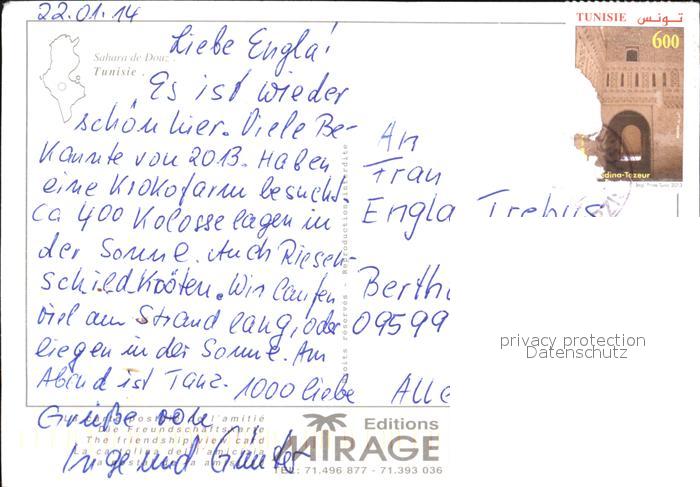 22.01.14
Sahara de Douz
Tunisie
Liebe Engla!
Es ist wieder
schön hier. Viele Be-
kannte von 2013. Haben
eine Krokofarm besucht.
ca 400 Kolosse lagen in
der Sonne. Auch Riesen-
schildkröten. Wir laufen
viel am Strand lang, oder
liegen in der Sonne. Am
Abend ist Tanz. 1000 liebe
Grüße von
Inge und Günter
TUNISIE تونس
600
dina-Tozeur
An
Frau
Engla
Berth
09599
privacy protection
Datenschutz
Reproduction interdite
l'amitié
Die Freundschaftskarte
The friendship view card
Editions
MIRAGE
TEL: 71.496 877 - 71.393 036